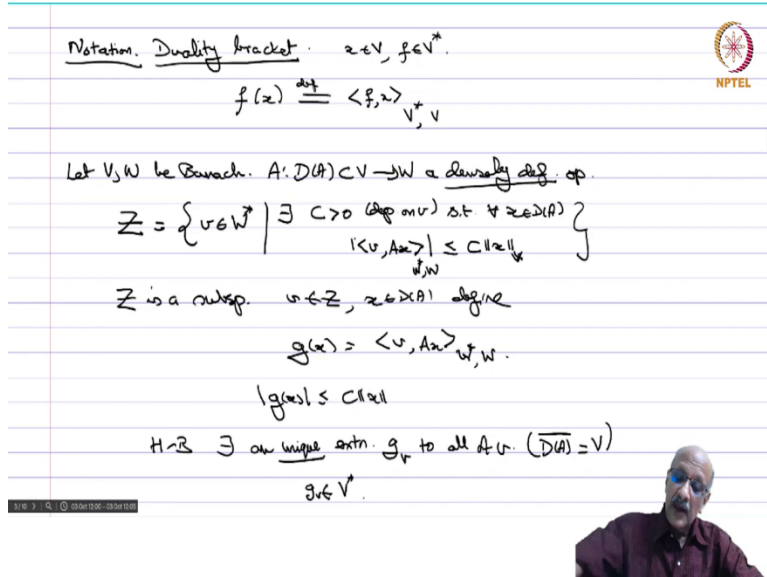 Notation. Duality bracket. x∈V, f∈V*.
NPTEL
f(x) def= <f,x> V*, V
Let V, W be Banach. A: D(A) ⊂ V → W a densely def. op.
Z = { v∈W* | ∃ C>0 (dep on v) s.t. ∀ x∈D(A)
|<v, Ax>| W*,W ≤ C||x||V }
Z is a subsp. v∈Z, x∈D(A) define
g(x) = <v, Ax> W*, W.
|g(x)| ≤ C||x||
H-B ∃ an unique extn. gv to all of V. (D̅(̅A̅)̅ = V)
gv ∈ V*.
3/10 03 Oct 12:00 - 03 Oct 12:05